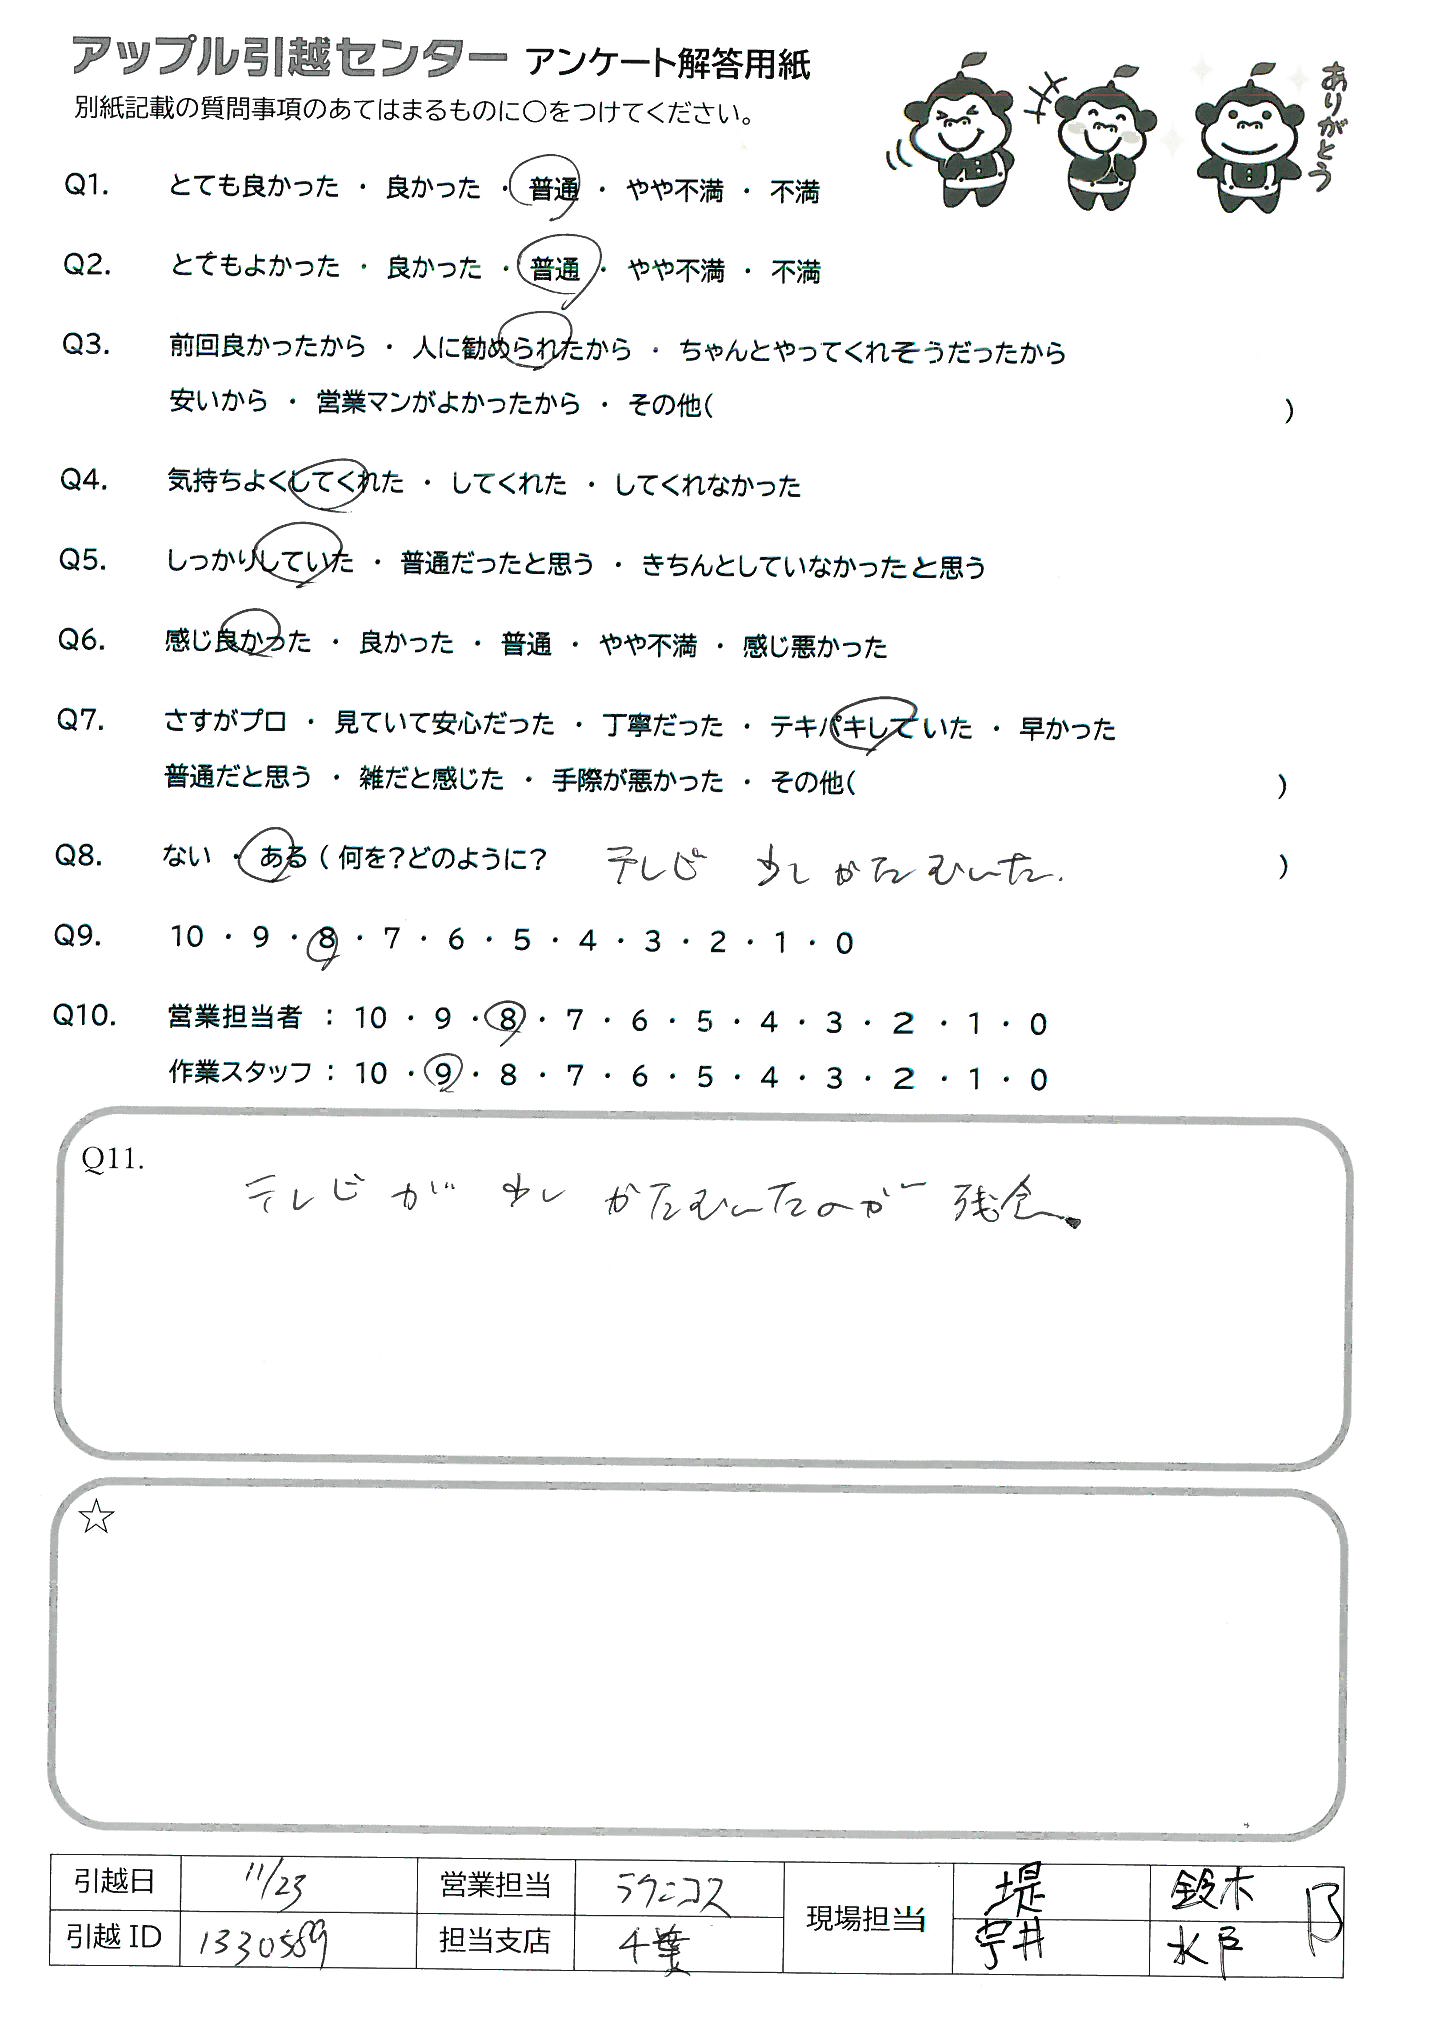 アップル引越センター アンケート解答用紙
別紙記載の質問事項のあてはまるものに○をつけてください。
ありがとう
Q1. とても良かった ・ 良かった ・ 普通 ・ やや不満 ・ 不満
Q2. とてもよかった ・ 良かった ・ 普通 ・ やや不満 ・ 不満
Q3. 前回良かったから ・ 人に勧められたから ・ ちゃんとやってくれそうだったから
安いから ・ 営業マンがよかったから ・ その他( )
Q4. 気持ちよくしてくれた ・ してくれた ・ してくれなかった
Q5. しっかりしていた ・ 普通だったと思う ・ きちんとしていなかったと思う
Q6. 感じ良かった ・ 良かった ・ 普通 ・ やや不満 ・ 感じ悪かった
Q7. さすがプロ ・ 見ていて安心だった ・ 丁寧だった ・ テキパキしていた ・ 早かった
普通だと思う ・ 雑だと感じた ・ 手際が悪かった ・ その他( )
Q8. ない ・ ある ( 何を?どのように? テレビ 少しかたむいた. )
Q9. 10 ・ 9 ・ 8 ・ 7 ・ 6 ・ 5 ・ 4 ・ 3 ・ 2 ・ 1 ・ 0
Q10. 営業担当者 : 10 ・ 9 ・ 8 ・ 7 ・ 6 ・ 5 ・ 4 ・ 3 ・ 2 ・ 1 ・ 0
作業スタッフ : 10 ・ 9 ・ 8 ・ 7 ・ 6 ・ 5 ・ 4 ・ 3 ・ 2 ・ 1 ・ 0
Q11.
テレビが 少し かたむいたのが 残念。
☆
引越日 11/23 営業担当 現場担当 堤 鈴木
引越 ID 1330589 担当支店 千葉 宇井 水戸